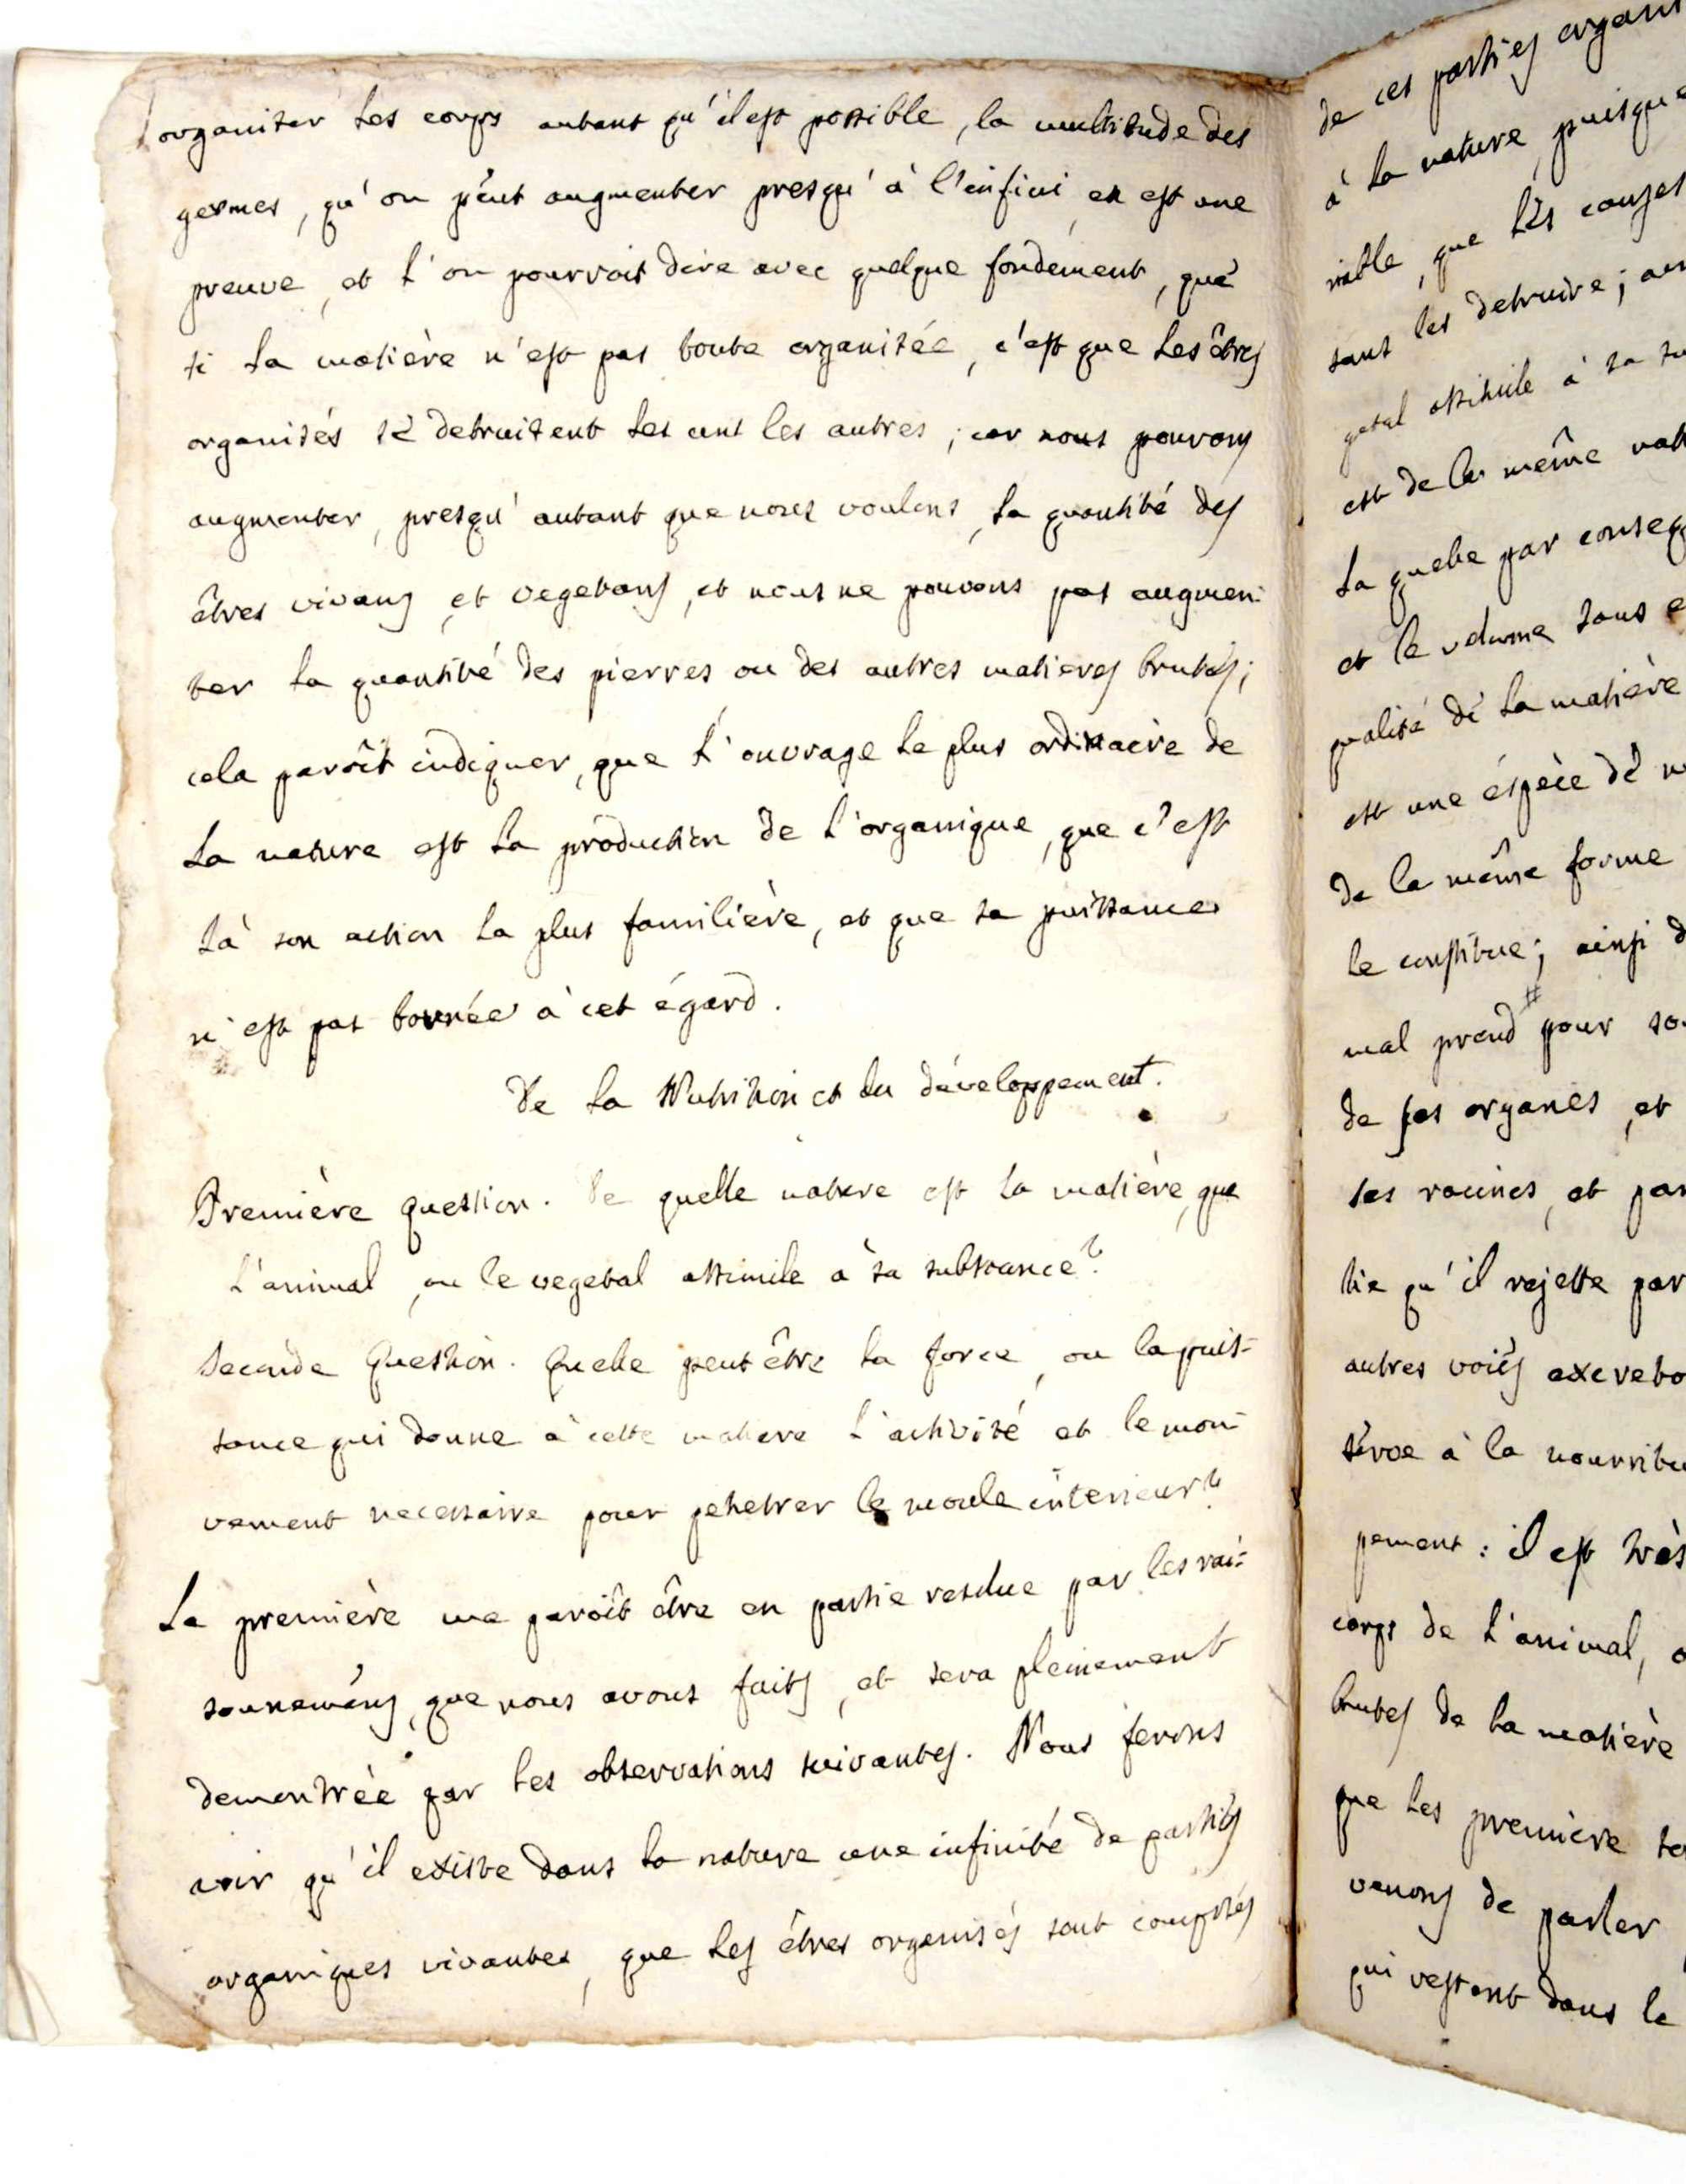 organiser les corps autant qu'il est possible, la multitude des
germes, qu'on peut augmenter presqu'à l'infini, en est une
preuve, et l'on pourroit dire avec quelque fondement, que
si la matière n'est pas toute organisée, c'est que les êtres
organisés se detruisent les uns les autres; car nous pouvons
augmenter, presqu'autant que nous voulons, la quantité des
êtres vivans, et vegetans, et nous ne pouvons pas augmen-
ter la quantité des pierres ou des autres matieres brutes;
cela paroît indiquer, que l'ouvrage le plus ordinaire de
la nature est la production de l'organique, que c'est
là son action la plus familière, et que sa puissance
n'est pas bornée à cet égard.
De la Nutrition et du développement.
Première question. De quelle nature est la matière, que
l'animal, ou le vegetal assimile à sa substance?
Seconde Question. Quelle peut être la force, ou la puis-
sance qui donne à cette matiere l'activité et le mou-
vement necessaire pour penetrer le moule interieur?
La première me paroît être en partie resolue par les rai-
sonnemens, que nous avons faits, et sera pleinement
demontrée par les observations suivantes. Nous ferons
voir qu'il existe dans la nature une infinité de parties
organiques vivantes, que les êtres organisés sont composés
de ces parties organi
à la nature, puisque
riable, que les causes
sans les detruire;
getal assimile à sa
est de la même
la quelle par conseq
et le volume sans
qualité de la matière
est une éspèce de
de la même forme
le constitue; ainsi d
mal prend # pour so
de ses organes, et
ses racines, et par
tie qu'il rejette par
autres voies excreto
serve à la nourritu
pement: il est très
corps de l'animal, o
brutes de la matière
que les première se
venons de parler,
qui restent dans le